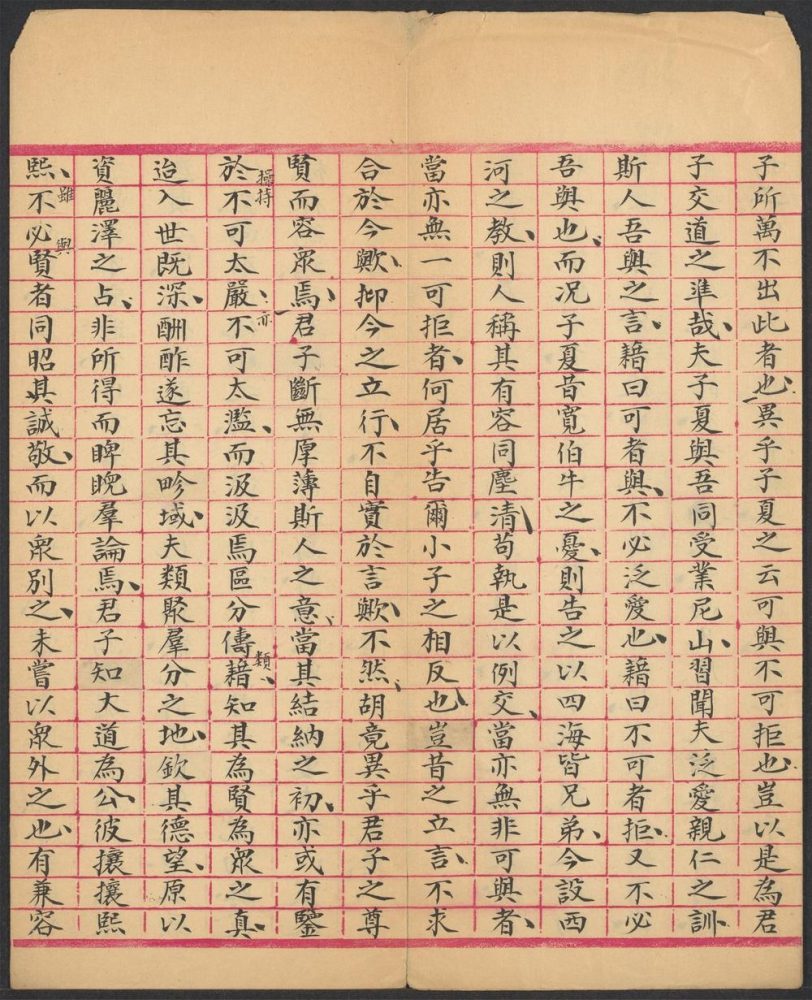 子所萬不出此者也、異乎子夏之云可與不可拒也、豈以是為君
子交道之準哉、夫子夏與吾同受業尼山、習聞夫泛愛親仁之訓
斯人吾與之言、藉曰可者與、不必泛愛也、藉曰不可者拒、又不必
吾與也、而况子夏昔寬伯牛之憂、則告之以四海皆兄弟、今設西
河之教、則人稱其有容同塵清、苟執是以例交、當亦無非可與者、
當亦無一可拒者、何居乎告爾小子之相反也、豈昔之立言、不求
合於今歟、抑今之立行、不自實於言歟、不然、胡竟異乎君子之尊
賢而容眾焉、君子斷無厚薄斯人之意、當其結納之初、亦或有鑒
操持
於不可太嚴、不可太濫、而汲汲焉區分儔藉、知其為賢為眾之真、
亦
類
迨入世既深、酬酢遂忘其畛域、夫類聚羣分之地、欽其德望、原以
資麗澤之占、非所得而睥睨羣論焉、君子知大道為公、彼攘攘熙
熙、不必賢者同昭其誠敬、而以眾別之、未嘗以眾外之也、有兼容
雖 與